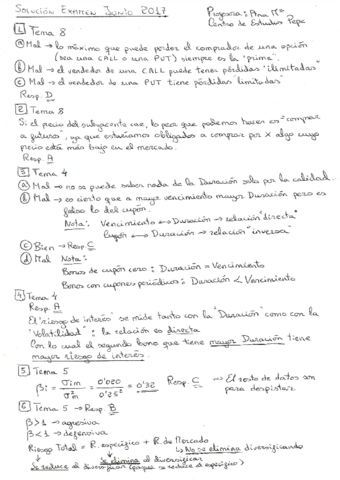 SOLUCIÓN EXAMEN JUNIO 2017
Profesora: Ana Mª
Centro de Estudios Pepe
1 Tema 8
a) Mal → lo máximo que puede perder el comprador de una opción
(sea una CALL o una PUT) siempre es la "prima".
b) Mal → el vendedor de una CALL puede tener pérdidas "ilimitadas"
c) Mal → el vendedor de una PUT tiene pérdidas "limitadas"
Resp. D
2 Tema 8
Si el precio del subyacente cae, lo peor que podemos hacer es "comprar
a futuros", ya que estaríamos obligados a comprar por X algo cuyo
precio está más bajo en el mercado.
Resp. A
3 Tema 4
a) Mal → no se puede saber nada de la Duración solo por la calidad.
b) Mal → es cierto que a mayor vencimiento mayor Duración pero es
falso lo del cupón.
Nota: Vencimiento ↔ Duración → relación "directa"
Cupón ↔ Duración → relación "inversa"
c) Bien → Resp. C
d) Mal Nota:
Bonos de cupón cero: Duración = Vencimiento
Bonos con cupones periódicos: Duración < Vencimiento
4 Tema 4
Resp. A
El "riesgo de interés" se mide tanto con la "Duración" como con la
"Volatilidad" : la relación es directa
Con lo cual el segundo bono que tiene mayor Duración tiene
mayor riesgo de interés.
5 Tema 5
βi = σim / σ²m = 0'020 / 0'25² = 0'32 Resp. C → El resto de datos son
para despistar.
6 Tema 5 → Resp. B
β > 1 → agresiva
β < 1 → defensiva
Riesgo Total = R. específico + R. de Mercado
↳ No se elimina diversificando
Se elimina al diversificar
Se reduce al diversificar (porque se reduce el específico)